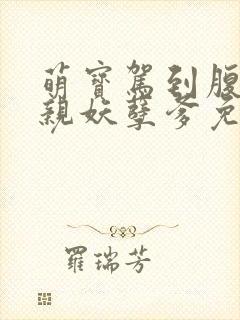 萌寶駕到腹
親妖孽爹免
羅瑞芳